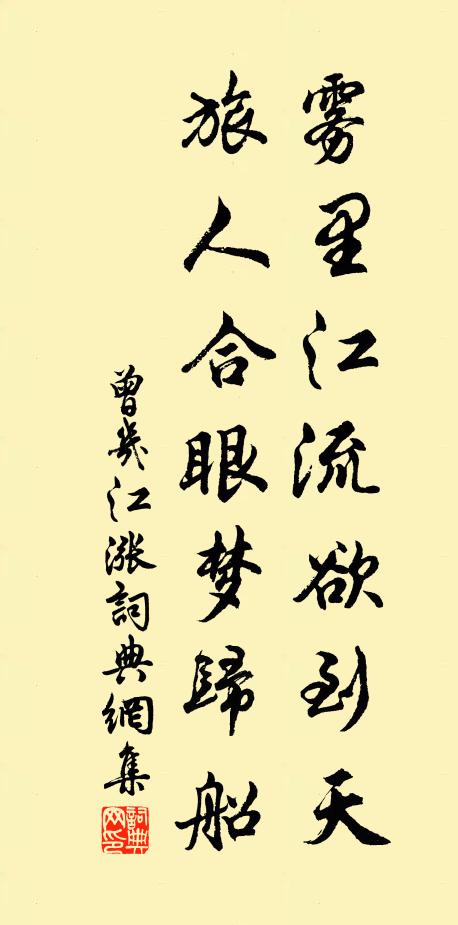 雾里江流欲到天
旅人合眼梦歸船
曾幾江漲詞典網集
詞典
网印